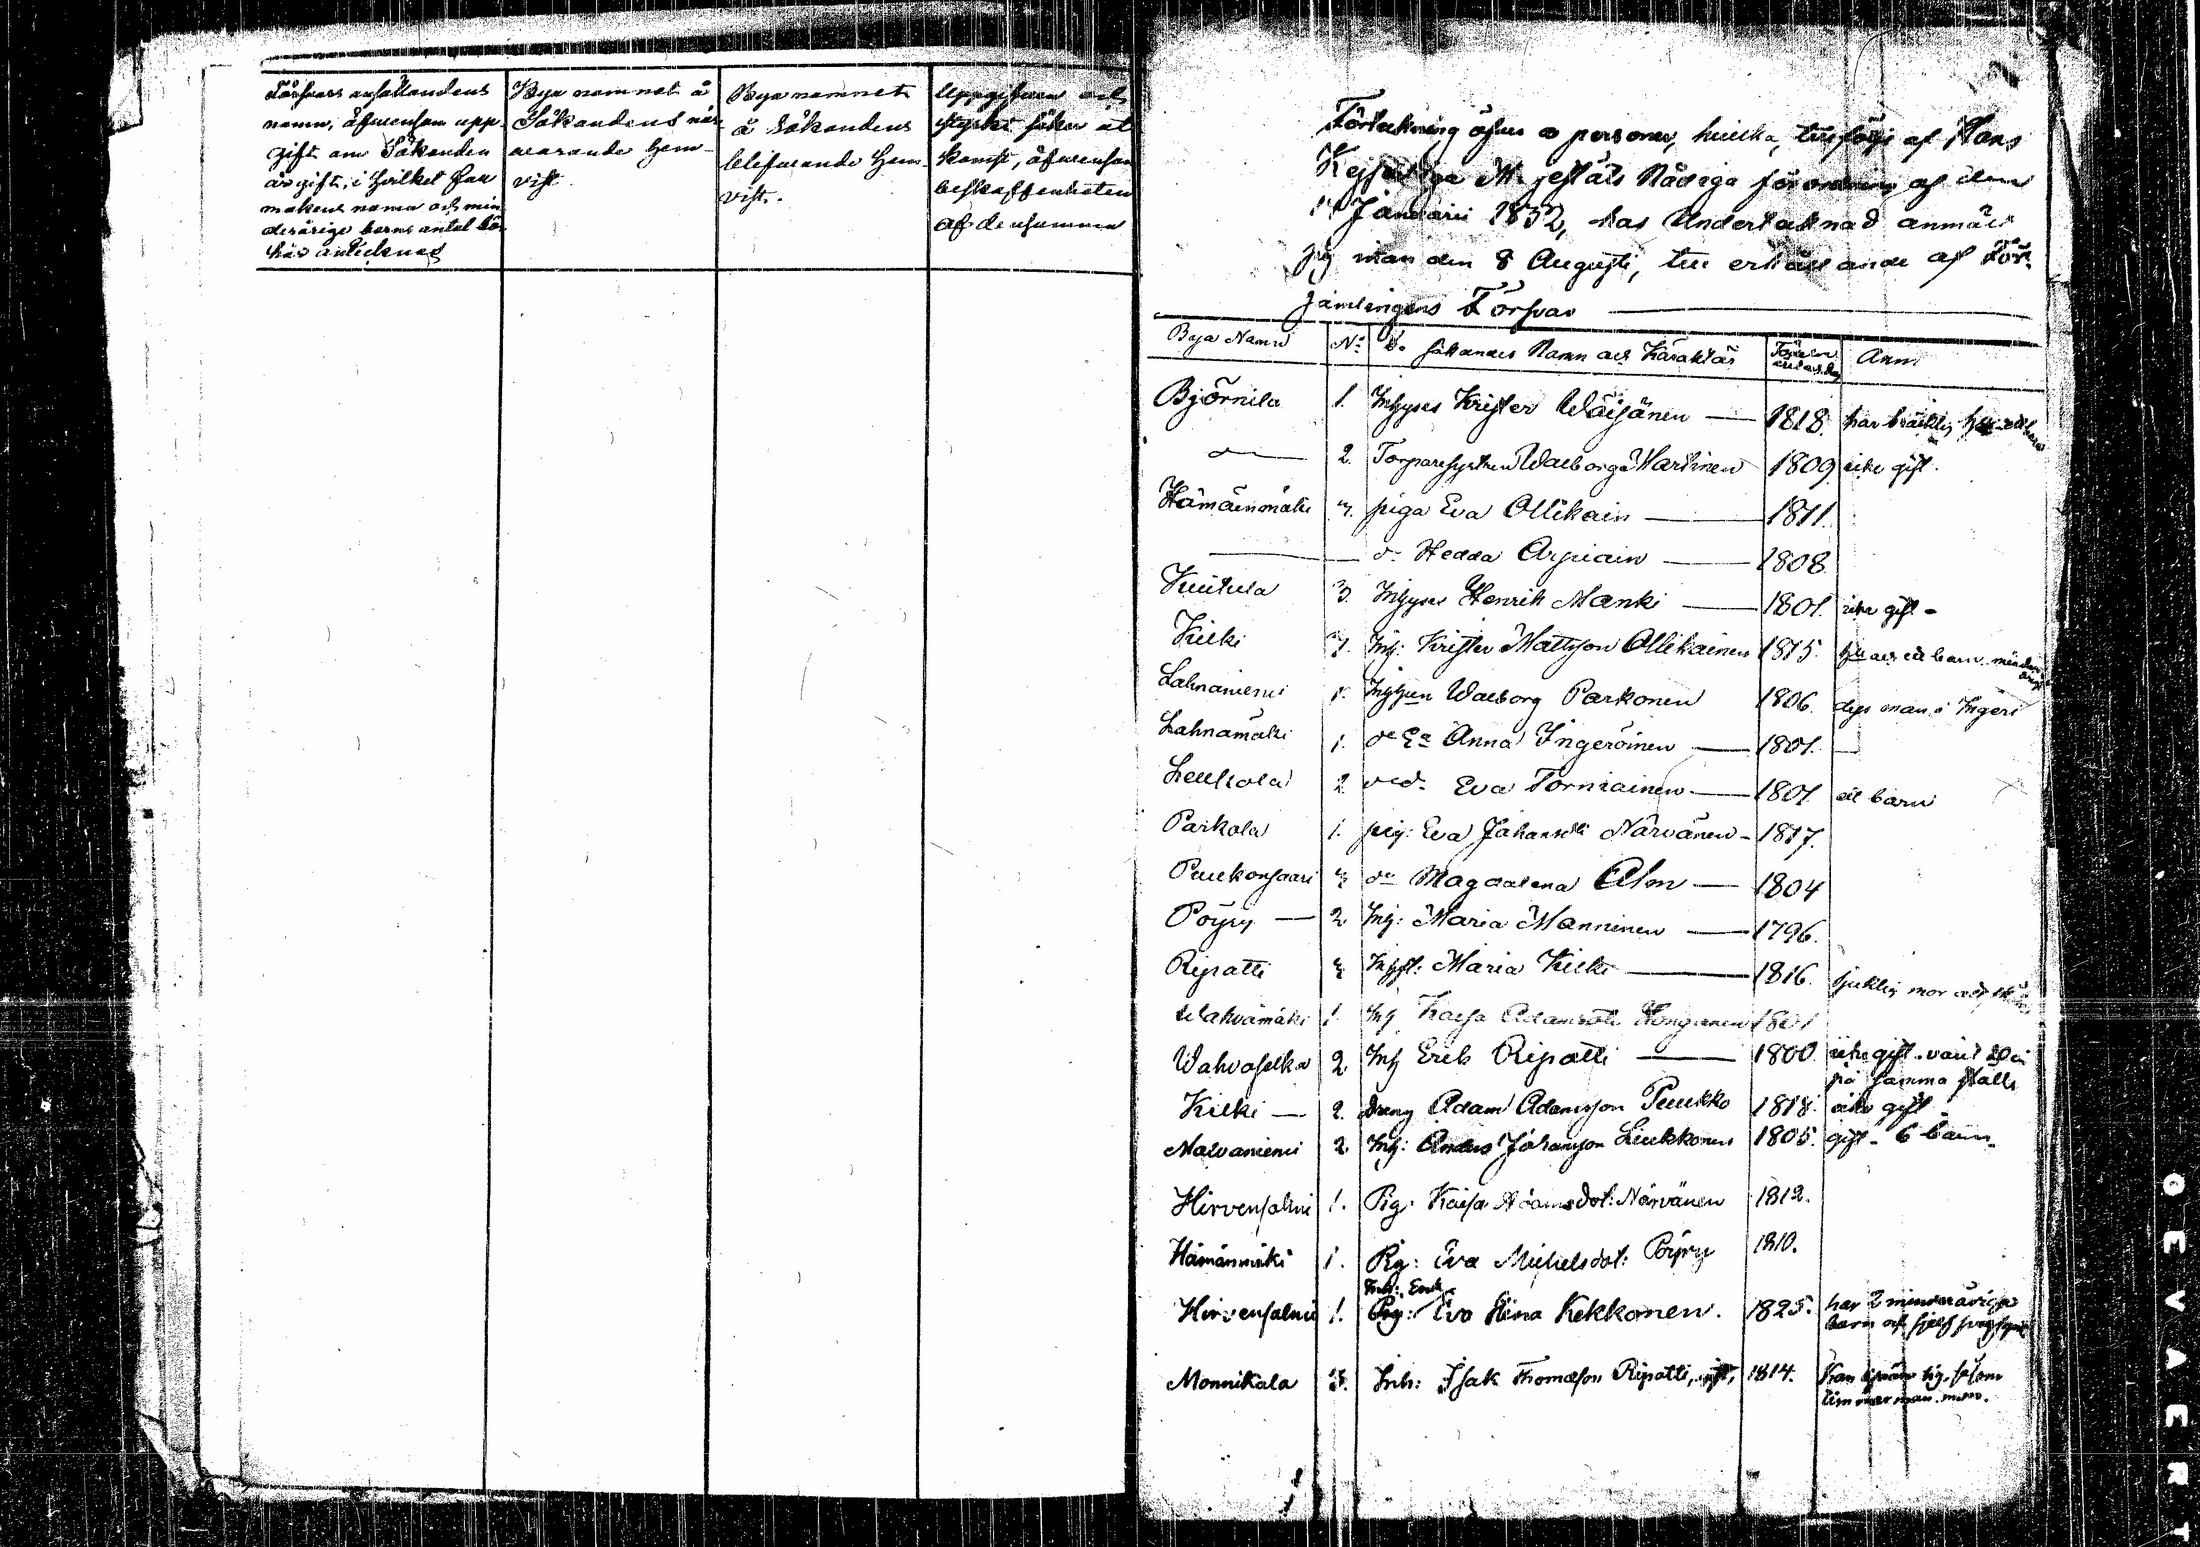 Försvars anhållandens
namn, äfvensom upp-
gift om Sökanden
är gift, i hvilket fall
makens namn och min
derårige barns antal bör
här antecknas
Bya namnet å
Sökandens när-
varande hem-
vist.
Bya namnet
å Sökandens
blifvande hem-
vist.
Uppgifven och
styrkt säker ut
komst, äfvensom
beskaffenheten
af densamma
Förtekning öfver personer, hvilka, till följe af Hans
Kejserliga Majestäts Nådiga förordning af den
Januarii 1852, hos Undertecknad anmält
sig innan den 8 Augusti, till erhållande af För-
samlingens Försvar
Bya Namn N:o Sökandes Namn och Karaktär Anm:
Björnila 1. Inhyses Krister Wäisänen 1818. har bräcklig
2. Torparesystren Walborg Martinen 1809 icke gift.
Hämäenmäki 3. piga Eva Ollikain 1811.
d:o Hedda Arpiain 1808.
Kuitula 3. Inhyses Henrik Manki 1801. icke gift -
Kilki 7. Inh: Krister Mattsson Ollikainen 1815. barn
Lahnaniemi 1. Walborg Parkonen 1806. man i Ingeri
Lahnamäki 1. d:o E:a Anna Ingeröinen 1801.
Leukola 2 Eva Torniainen 1801. ett barn
Parkola 1. pig: Eva Johansdt: Närvänen - 1817.
Puukonsaari 3 d:o Magdalena Alm 1804
Pöyry 2 Inh: Maria Manninen 1796.
Ripatti 3 Maria Kilki 1816. sjuklig mor
Wahvamäki 1. Inh Kaisa Adamsdt: 1801
Wahvaselkä 2 Inh Erik Ripatti 1800. icke gift. varit 20 år
på samma ställe
Kilki 2. dreng Adam Adamsson Puukko 1818. icke gift
Malvaniemi 2. Inh: Anders Johansson Liukkonen 1805. gift - 6 barn -
Hirvensalmi 1. Pig: Kaisa Adamsdot: Närvänen 1812.
Hämänmäki 1. Pig: Eva Michelsdot: Pöyry 1810.
Inh: Enk:
Hirvensalmi 1. Pig: Eva Stina Kekkonen. 1825. har 2 minderåriga
barn och sjelf
Monnikala 3. Inh: Isak Thomasson Ripatti, gift, 1814. Kan sig såsom
timmerman.